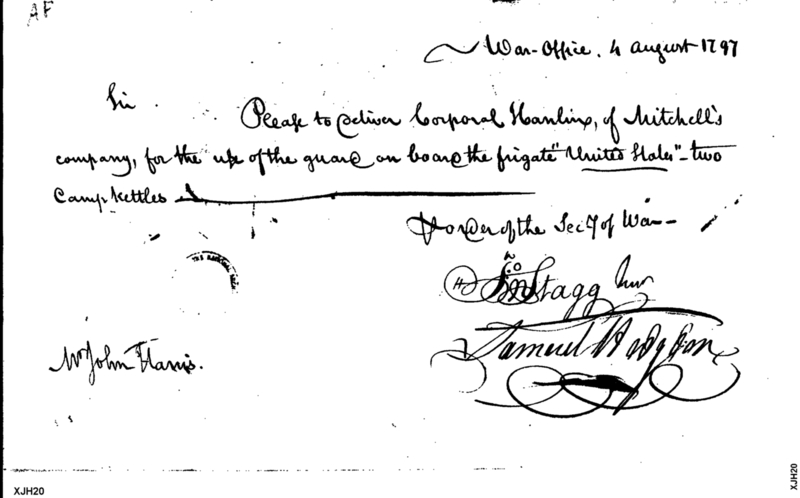 AF
War-Office. 4 august 1797
Sir
Please to deliver Corporal Hamlin, of Mitchell's
company, for the use of the guard on board the frigate "United States" - two
Camp kettles
By order of the Secy of War -
Jn Stagg Junr
Samuel Hodgdon
Mr John Harris.
XJH20
XJH20